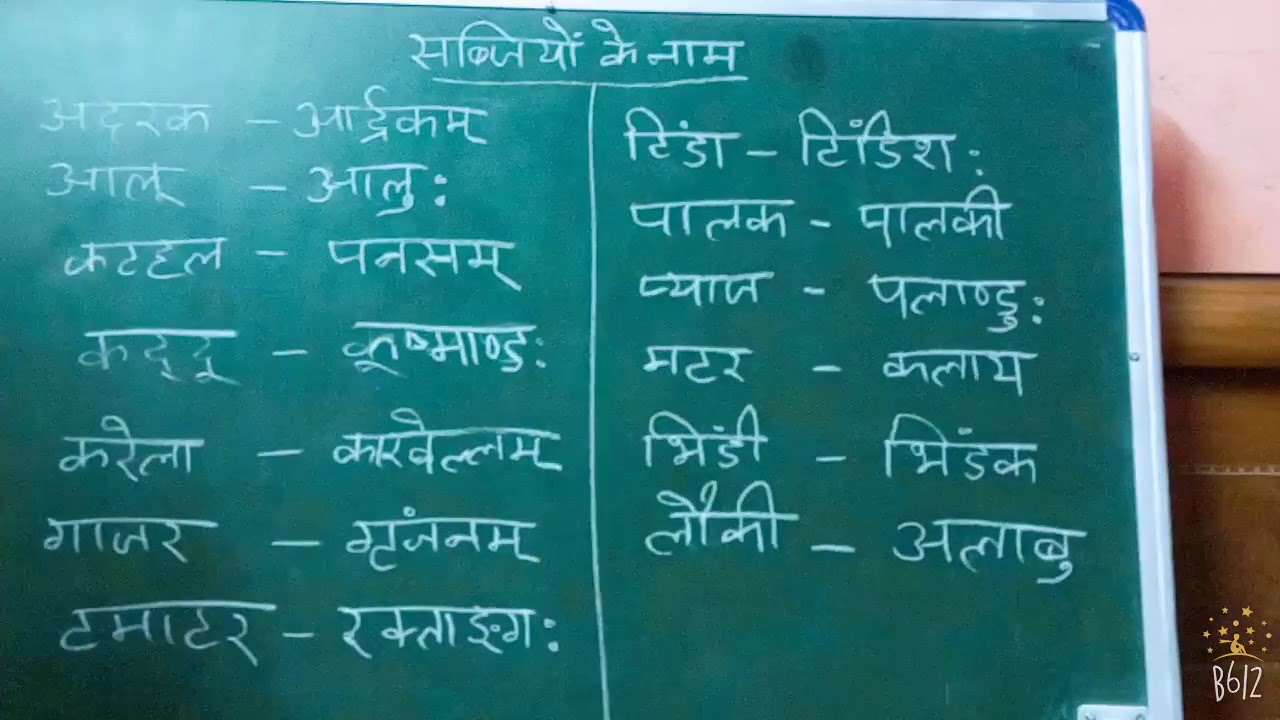 सब्जियों के नाम
अदरक - आर्द्रकम्
आलू - आलुः
कटहल - पनसम्
कद्दू - कूष्माण्डः
करेला - कारवेल्लम्
गाजर - गृंजनम्
टमाटर - रक्ताङ्गः
टिंडा - टिंडिशः
पालक - पालकी
प्याज - पलाण्डुः
मटर - कलाय
भिंडी - भिंडक
लौकी - अलाबु
B612